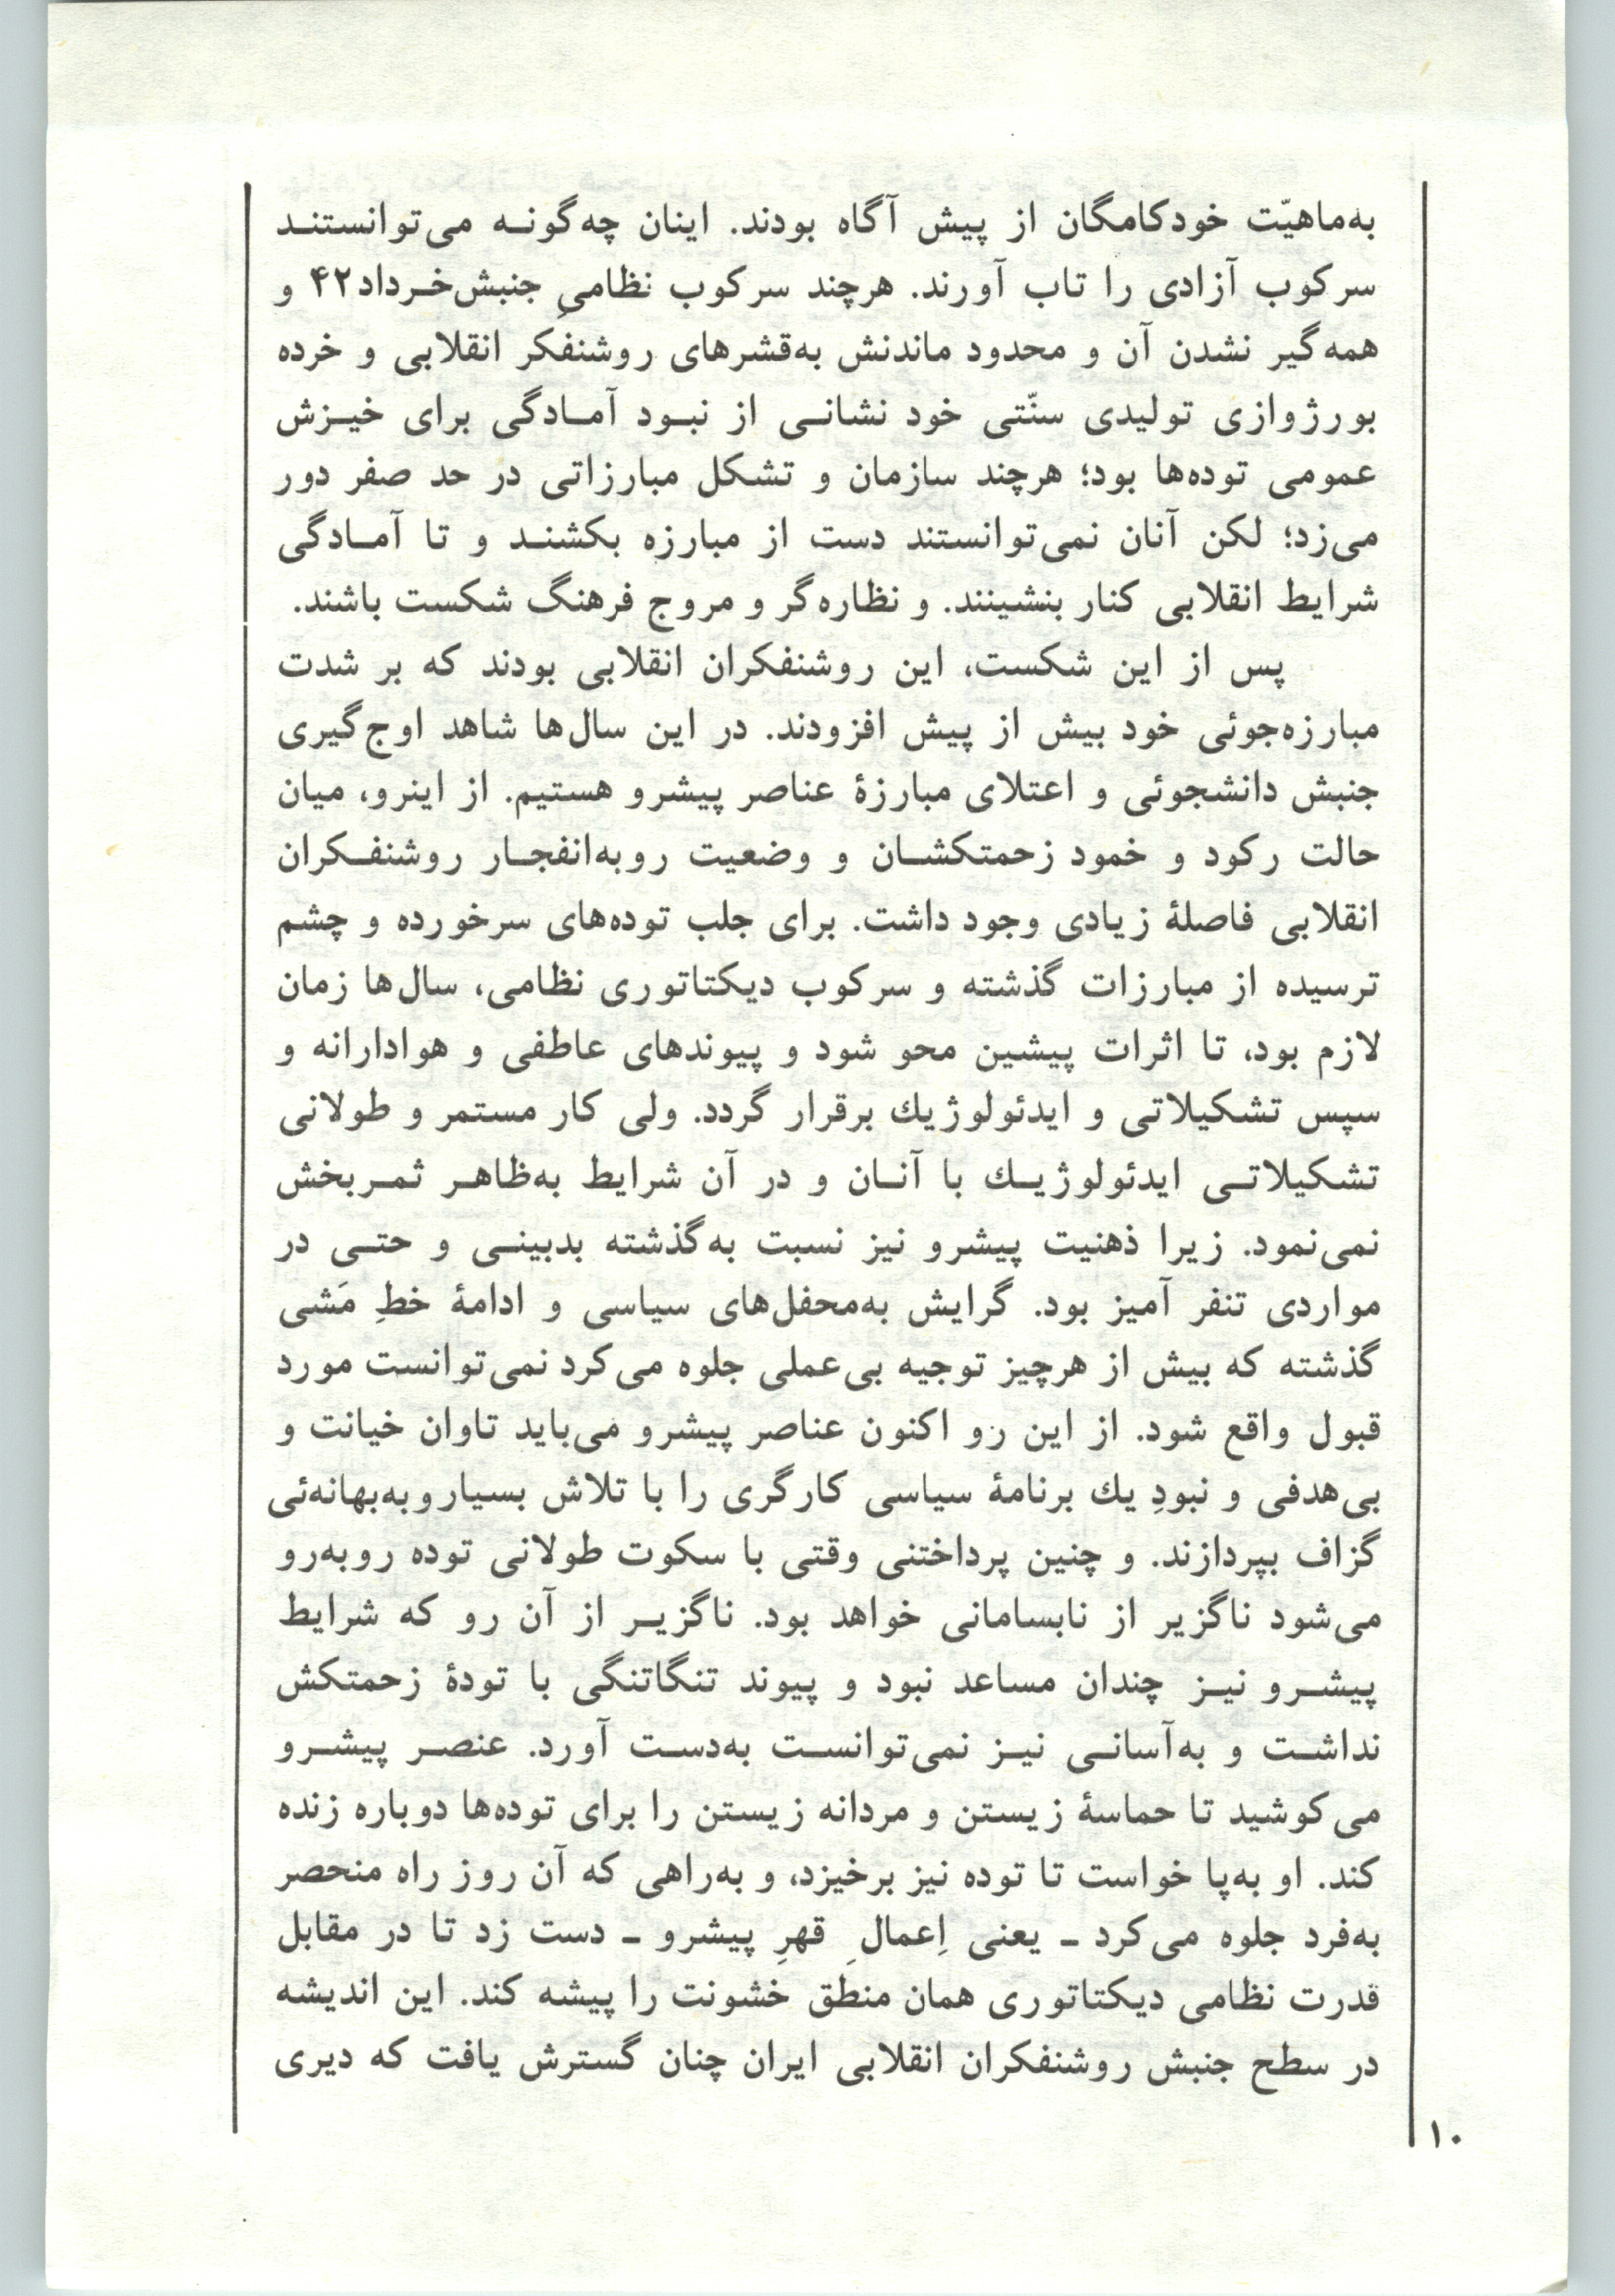 به‌ماهیّت خودکامگان از پیش آگاه بودند. اینان چه‌گونه می‌توانستند
سرکوب آزادی را تاب آورند. هرچند سرکوب نظامیِ جنبش‌خرداد۴۲ و
همه‌گیر نشدن آن و محدود ماندنش به‌قشرهای روشنفکر انقلابی و خرده
بورژوازی تولیدی سنّتی خود نشانی از نبود آمادگی برای خیزش
عمومی توده‌ها بود؛ هرچند سازمان و تشکل مبارزاتی در حد صفر دور
می‌زد؛ لکن آنان نمی‌توانستند دست از مبارزه بکشند و تا آمادگی
شرایط انقلابی کنار بنشینند. و نظاره‌گر و مروج فرهنگ شکست باشند.
پس از این شکست، این روشنفکران انقلابی بودند که بر شدت
مبارزه‌جوئی خود بیش از پیش افزودند. در این سال‌ها شاهد اوج‌گیری
جنبش دانشجوئی و اعتلای مبارزهٔ عناصر پیشرو هستیم. از اینرو، میان
حالت رکود و خمود زحمتکشان و وضعیت روبه‌انفجار روشنفکران
انقلابی فاصلهٔ زیادی وجود داشت. برای جلب توده‌های سرخورده و چشم
ترسیده از مبارزات گذشته و سرکوب دیکتاتوری نظامی، سال‌ها زمان
لازم بود، تا اثرات پیشین محو شود و پیوندهای عاطفی و هوادارانه و
سپس تشکیلاتی و ایدئولوژیك برقرار گردد. ولی کار مستمر و طولانی
تشکیلاتی ایدئولوژیك با آنان و در آن شرایط به‌ظاهر ثمربخش
نمی‌نمود. زیرا ذهنیت پیشرو نیز نسبت به‌گذشته بدبینی و حتی در
مواردی تنفر آمیز بود. گرایش به‌محفل‌های سیاسی و ادامهٔ خطِ مَشی
گذشته که بیش از هرچیز توجیه بی‌عملی جلوه می‌کرد نمی‌توانست مورد
قبول واقع شود. از این رو اکنون عناصر پیشرو می‌باید تاوان خیانت و
بی‌هدفی و نبودِ یك برنامهٔ سیاسی کارگری را با تلاش بسیار و به‌بهانه‌ئی
گزاف بپردازند. و چنین پرداختنی وقتی با سکوت طولانی توده روبه‌رو
می‌شود ناگزیر از نابسامانی خواهد بود. ناگزیر از آن رو که شرایط
پیشرو نیز چندان مساعد نبود و پیوند تنگاتنگی با تودهٔ زحمتکش
نداشت و به‌آسانی نیز نمی‌توانست به‌دست آورد. عنصر پیشرو
می‌کوشید تا حماسهٔ زیستن و مردانه زیستن را برای توده‌ها دوباره زنده
کند. او به‌پا خواست تا توده نیز برخیزد، و به‌راهی که آن روز راه منحصر
به‌فرد جلوه می‌کرد ـ یعنی اِعمالِ قهرِ پیشرو ـ دست زد تا در مقابل
قدرت نظامی دیکتاتوری همان منطق خشونت را پیشه کند. این اندیشه
در سطح جنبش روشنفکران انقلابی ایران چنان گسترش یافت که دیری
۱۰